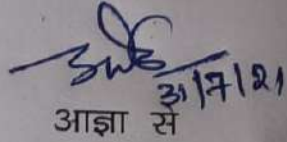 31/7/21
आज्ञा से